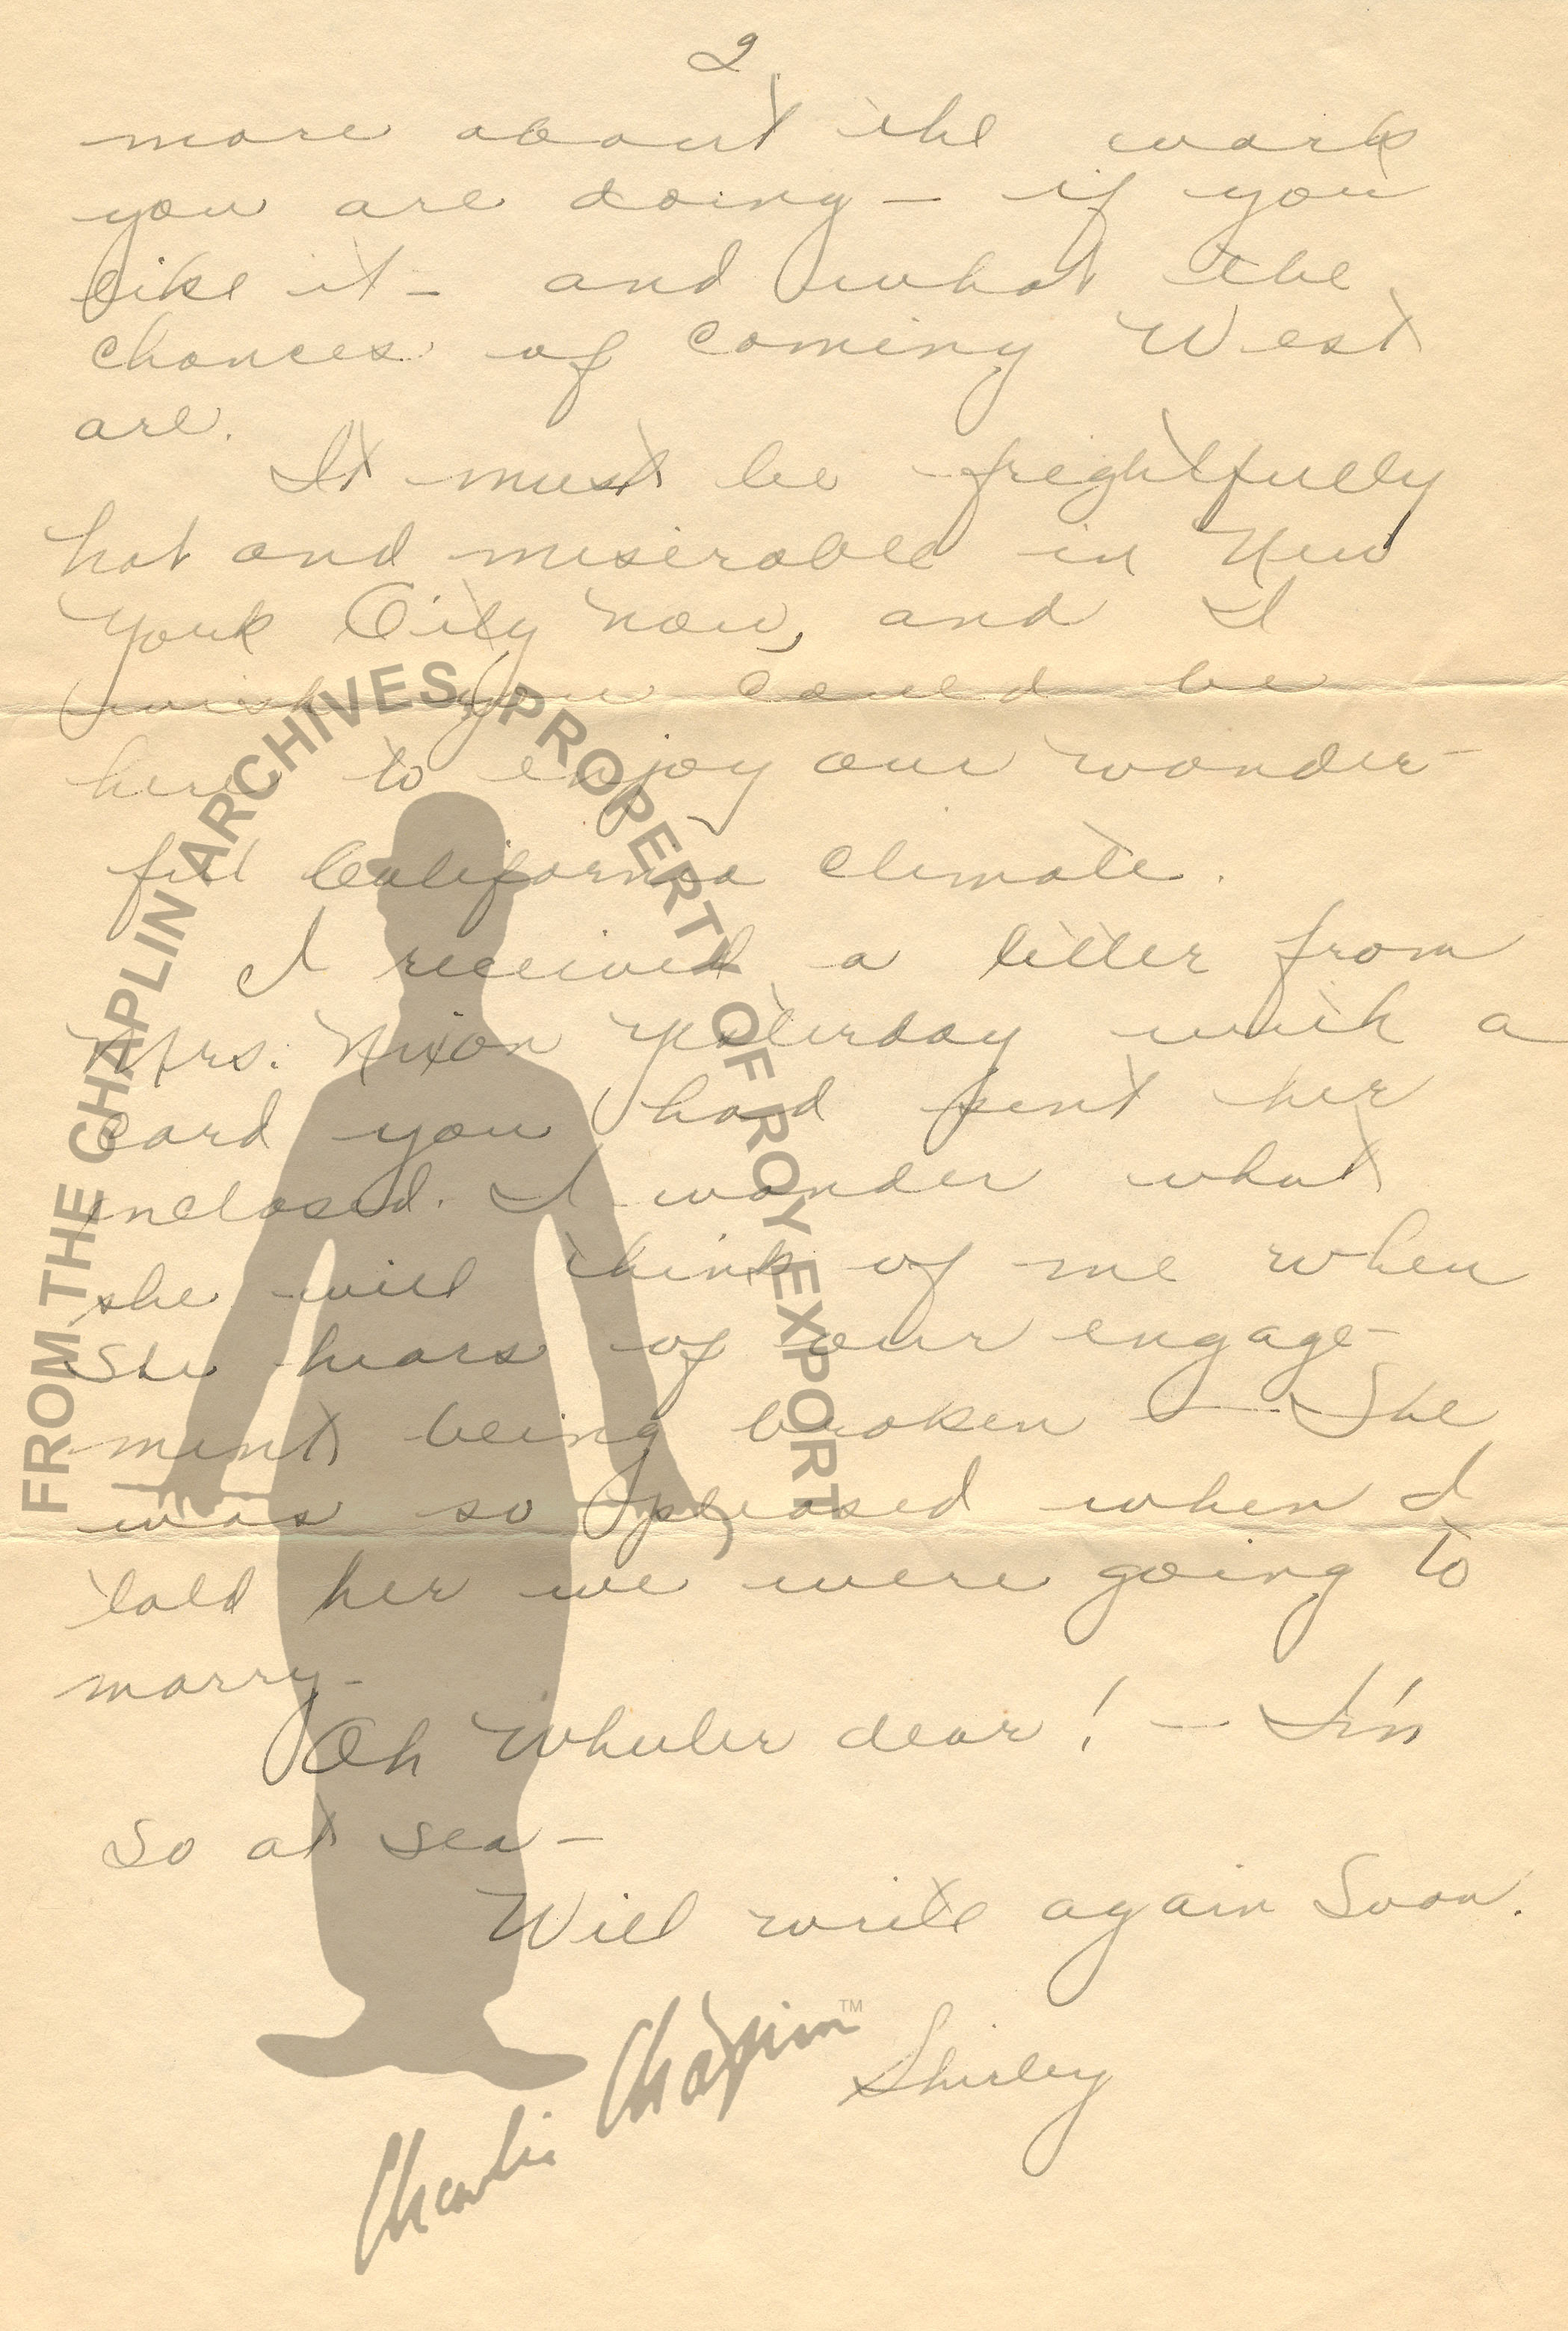 2
more about the work
you are doing — if you
like it — and what the
chances of coming West
are.
It must be frightfully
hot and miserable in New
York City now, and I
wish you could be
here to enjoy our wonder-
ful California climate.
I received a letter from
Mrs. Nixon yesterday with a
card you had sent her
enclosed. I wonder what
she will think of me when
she hears of our engage-
ment being broken — She
was so pleased when I
told her we were going to
marry —
Oh Wheeler dear! — I'm
so at sea —
Will write again soon.
Shirley
FROM THE CHAPLIN ARCHIVES, PROPERTY OF ROY EXPORT
Charlie Chaplin™